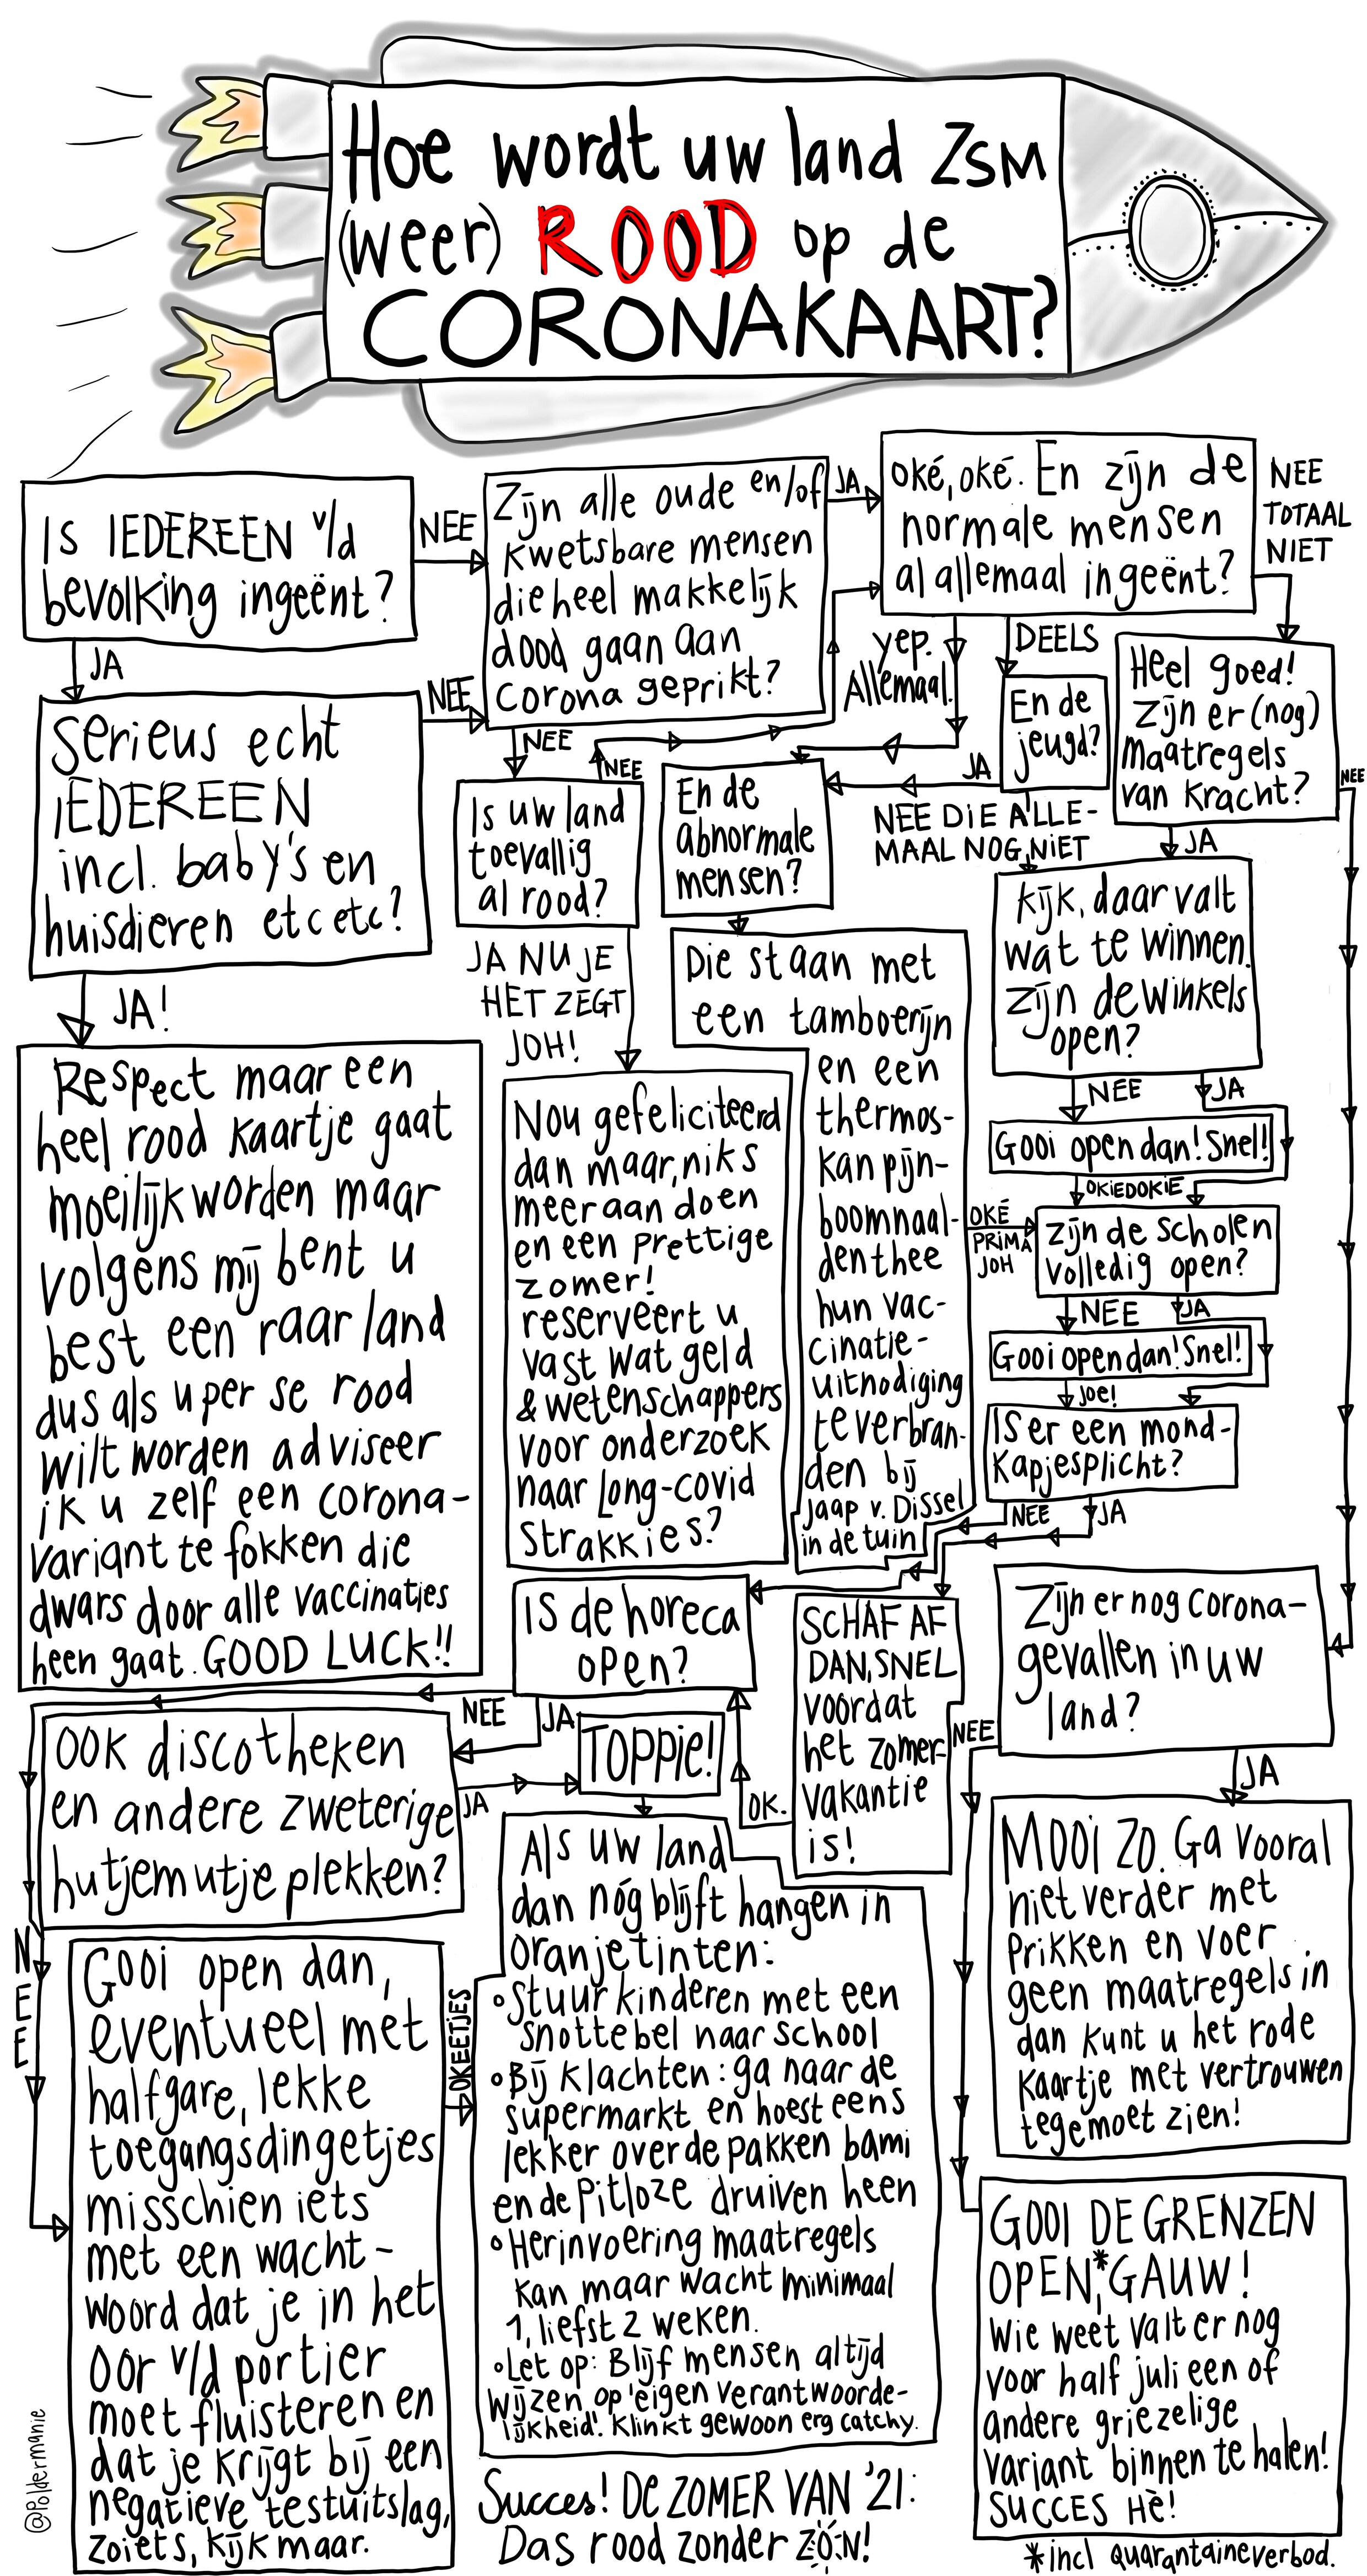 Hoe wordt uw land ZSM
(weer) ROOD op de
CORONAKAART?
Is IEDEREEN v/d
bevolking ingeënt?
NEE
JA
Serieus echt
IEDEREEN
incl. baby's en
huisdieren etc etc?
NEE
JA!
Respect maar een
heel rood kaartje gaat
moeilijk worden maar
volgens mij bent u
best een raar land
dus als u per se rood
wilt worden adviseer
ik u zelf een corona-
variant te fokken die
dwars door alle vaccinatjes
heen gaat. GOOD LUCK!!
Zijn alle oude en/of
kwetsbare mensen
die heel makkelijk
dood gaan aan
corona geprikt?
JA
NEE
Is uw land
toevallig
al rood?
NEE
JA NU JE
HET ZEGT
JOH!
Nou gefeliciteerd
dan maar, niks
meer aan doen
en een prettige
zomer!
reserveert u
vast wat geld
& wetenschappers
voor onderzoek
naar long-covid
strakkies?
oké, oké. En zijn de
normale mensen
al allemaal ingeënt?
NEE
TOTAAL
NIET
yep.
Allemaal.
DEELS
En de
jeugd?
JA
NEE DIE ALLE-
MAAL NOG NIET
En de
abnormale
mensen?
Die staan met
een tamboerijn
en een
thermos-
kan pijn-
boomnaal-
denthee
hun vac-
cinatie-
uitnodiging
te verbran-
den bij
Jaap v. Dissel
in de tuin
OKÉ
PRIMA
JOH
Heel goed!
Zijn er (nog)
maatregels
van kracht?
NEE
JA
Kijk, daar valt
wat te winnen.
Zijn de winkels
open?
NEE
JA
Gooi open dan! Snel!
OKIEDOKIE
Zijn de scholen
volledig open?
NEE
JA
Gooi open dan! Snel!
JOE!
Is er een mond-
kapjesplicht?
NEE
JA
SCHAF AF
DAN, SNEL
voordat
het zomer-
vakantie
is!
OK.
Is de horeca
open?
NEE
JA
Ook discotheken
en andere zweterige
hutjemutje plekken?
JA
NEE
TOPPIE!
Gooi open dan,
eventueel met
halfgare, lekke
toegangsdingetjes
misschien iets
met een wacht-
woord dat je in het
oor v/d portier
moet fluisteren en
dat je krijgt bij een
negatieve testuitslag,
zoiets, kijk maar.
OKEETJES
Als uw land
dan nóg blijft hangen in
oranjetinten:
∘ Stuur kinderen met een
snottebel naar school
∘ Bij klachten: ga naar de
supermarkt en hoest eens
lekker over de pakken bami
en de pitloze druiven heen
∘ Herinvoering maatregels
kan maar wacht minimaal
1, liefst 2 weken.
∘ Let op: Blijf mensen altijd
wijzen op 'eigen verantwoorde-
lijkheid'. Klinkt gewoon erg catchy.
Succes! DE ZOMER VAN '21:
Das rood zonder ZON!
Zijn er nog corona-
gevallen in uw
land?
NEE
JA
MOOI ZO. Ga vooral
niet verder met
prikken en voer
geen maatregels in
dan kunt u het rode
kaartje met vertrouwen
tegemoet zien!
GOOI DE GRENZEN
OPEN,* GAUW!
Wie weet valt er nog
voor half juli een of
andere griezelige
variant binnen te halen!
SUCCES HÈ!
*incl quarantaineverbod.
@Poldermanie